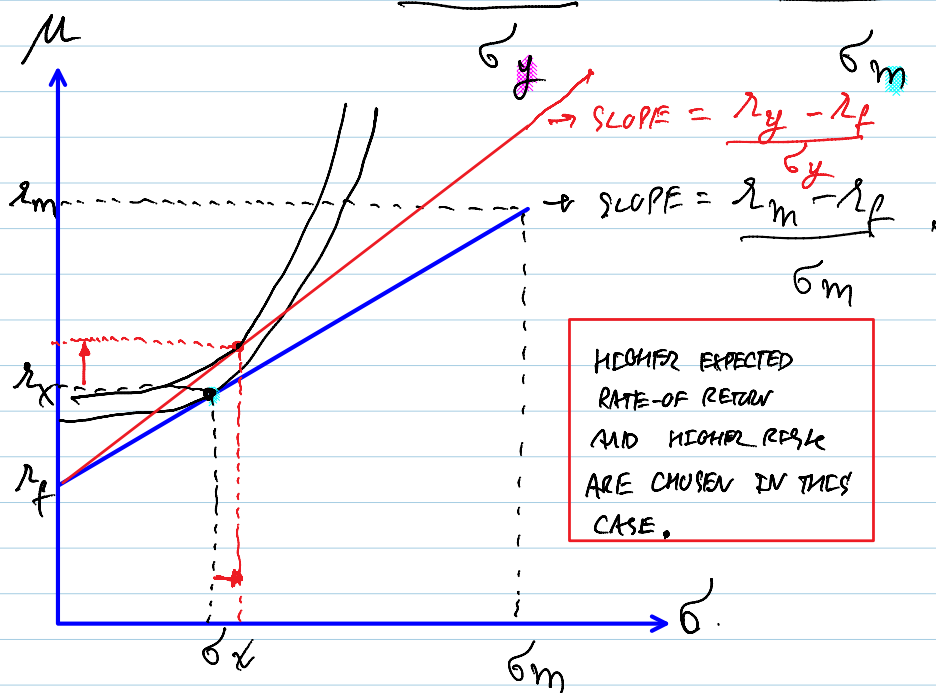 μ
σy
σm
→ SLOPE = ry - rf
σy
rm
→ SLOPE = rm - rf
σm
HIGHER EXPECTED
RATE-OF RETURN
AND HIGHER RISK
ARE CHOSEN IN THIS
CASE.
rx
rf
σ.
σx
σm